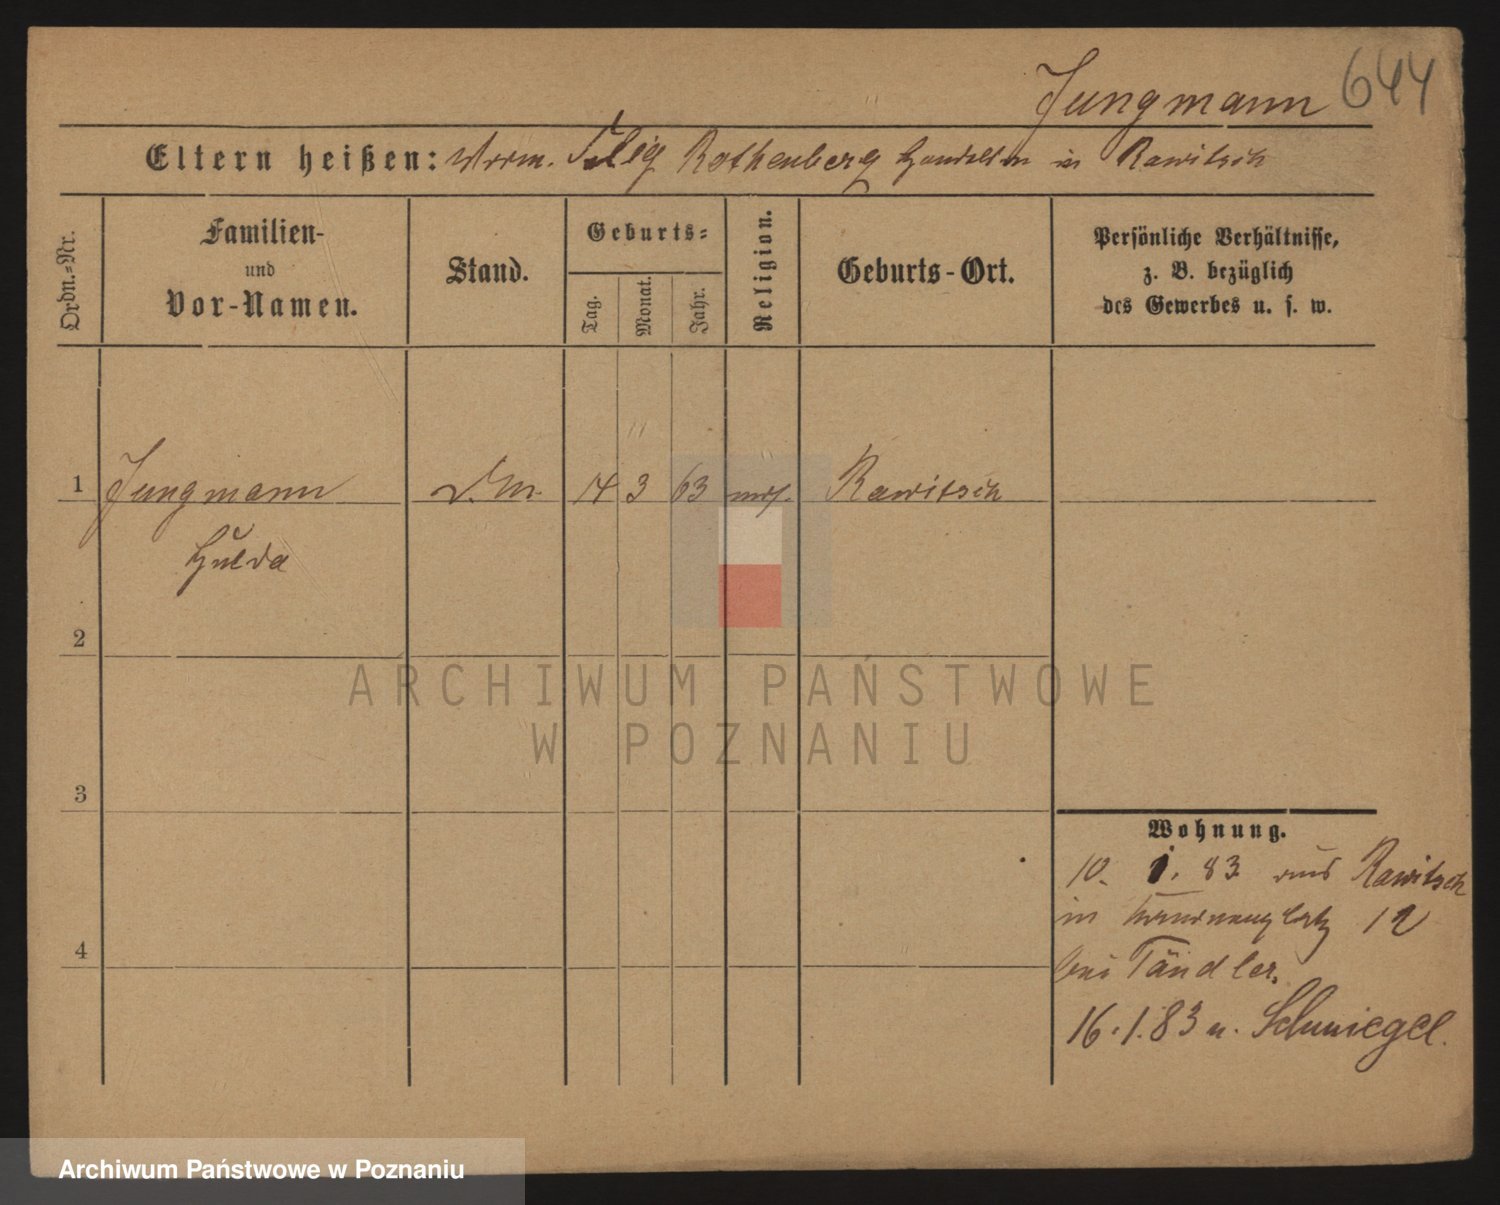 Jungmann 644
Eltern heißen: Selig Rothenberg Handelsm in Rawitsch
Ordn.=Nr.
Familien-
und
Vor-Namen.
Stand.
Geburts=
Tag.
Monat.
Jahr.
Religion.
Geburts-Ort.
Persönliche Verhältnisse,
z. B. bezüglich
des Gewerbes u. s. w.
1 Jungmann D.M. 14 3 63 mos. Rawitsch
Hulda
2
3
4
Wohnung.
10. 1. 83 aus Rawitsch
in 12
bei Tändler.
16.1.83 n. Schmiegel.
ARCHIWUM PAŃSTWOWE
W POZNANIU
Archiwum Państwowe w Poznaniu